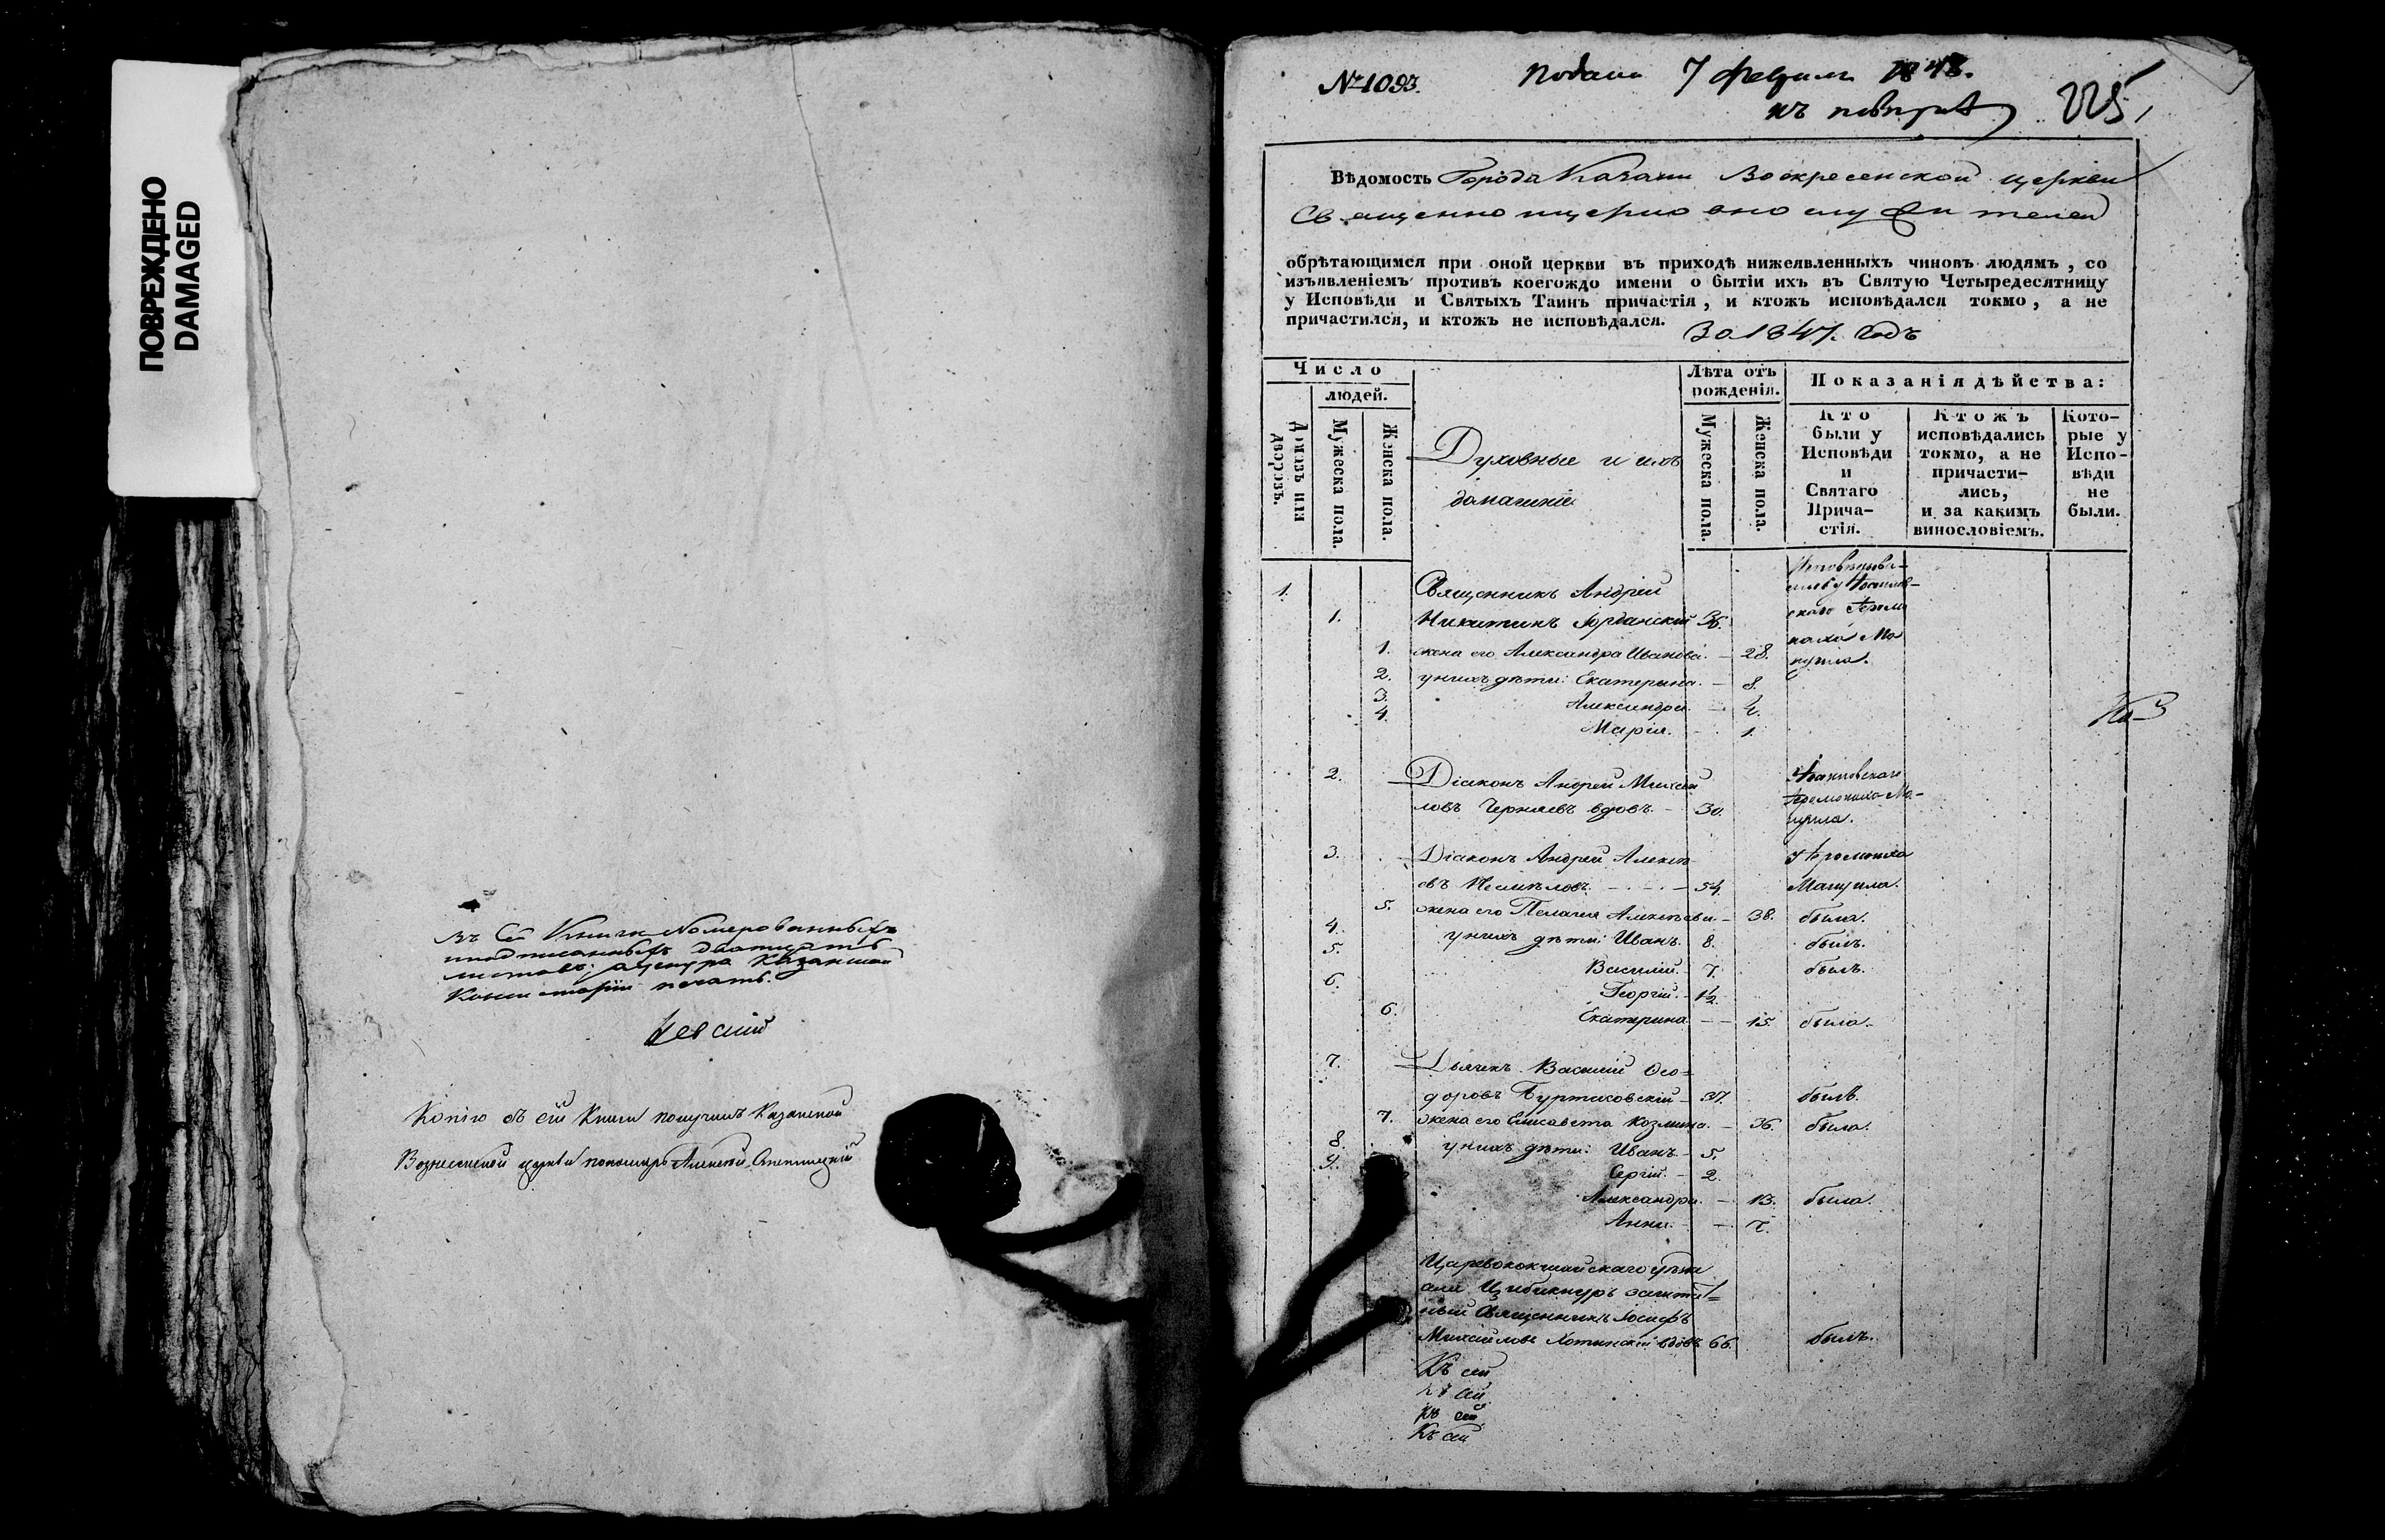 ПОВРЕЖДЕНО
DAMAGED
Въ сей Книги Номерованныхъ
листовъ;
Консисторіи печать.
Копію съ сей Книги получилъ Казанской
Вознесенской церкви пономарь Алексей
№ 1093.
Подана 7 феврал 1848.
225
Вѣдомость Города Казани Воскресенской церкви
Священно и церковно служителей
обрѣтающимся при оной церкви въ приходѣ нижеявленныхъ чиновъ людямъ, со
изъявленіемъ противъ коегождо имени о бытіи ихъ въ Святую Четыредесятницу
у Исповѣди и Святыхъ Таинъ причастія, и ктожъ исповѣдался токмо, а не
причастился, и ктожъ не исповѣдался.
За 1847. Годъ
Число
людей.
Домовъ или дворовъ.
Мужеска пола.
Женска пола.
Духовные и ихъ
домашніе
Лѣта отъ
рожденія.
Мужеска пола.
Женска пола.
Показанія дѣйства:
Кто
были у
Исповѣди
и
Святаго
Прича-
стія.
Ктожъ
исповѣдались
токмо, а не
причасти-
лись,
и за какимъ
винословіемъ.
Кото-
рые у
Испо-
вѣди
не
были.
1. Священникъ Андрей
1. Никитинъ Іорданскій 36.
1. жена его Александра Иванова. - 28.
2. у нихъ дѣти: Екатерина. - 8.
3. Александра. -
4. Марія. - 1.
2. Діаконъ Андрей Михаи
ловъ Черняевъ вдовъ. - 30.
3. Діаконъ Андрей Алексѣ
евъ - 54. Іеромонаха
5. жена его Пелагея Алексѣева - 38. была.
4. у нихъ дѣти: Иванъ. 8. былъ.
5. Василій. - 7. былъ.
6. Георгій. - 1/2
6. Екатерина - - 15. была.
7. Дьячекъ Василій Ѳео-
доровъ - 37. былъ.
7. жена его Елисавета Козмина. - 36. была.
8. у нихъ дѣти: Иванъ - 5.
9. Сергій - 2.
Александра. - 13. была.
Анна. - - 7.
Царевококшайскаго уѣзда
села Цибикнуръ заштат-
ный Священникъ Іосифъ
Михайловъ Хотинскій вдовъ 66. былъ.
Къ сей
къ сей
къ сей
Къ сей